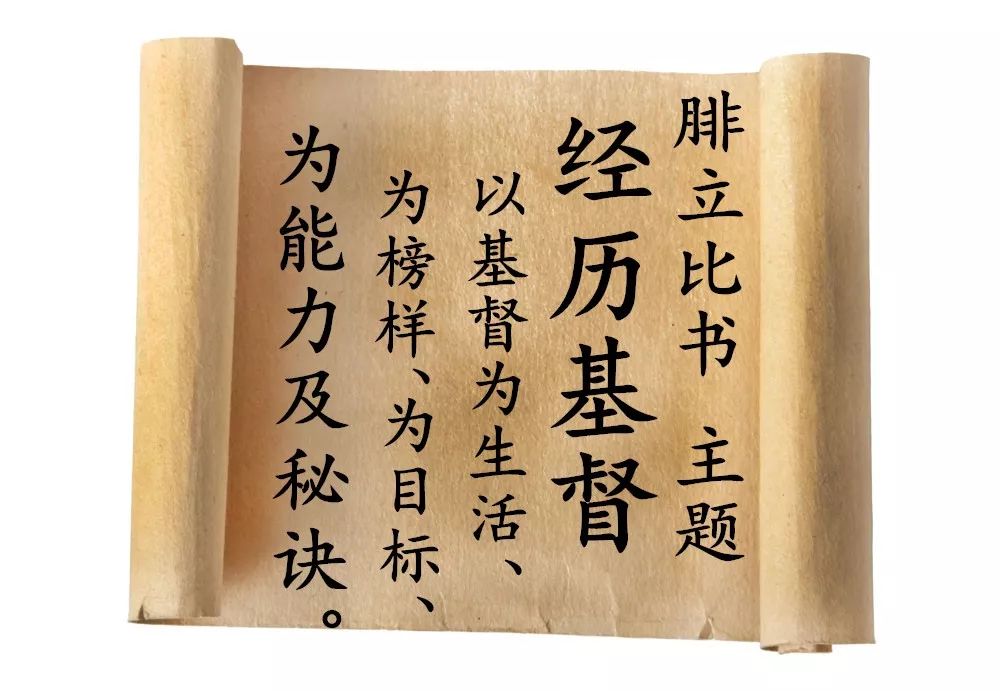 腓立比书 主题
经历基督
以基督为生活、
为榜样、为目标、
为能力及秘诀。